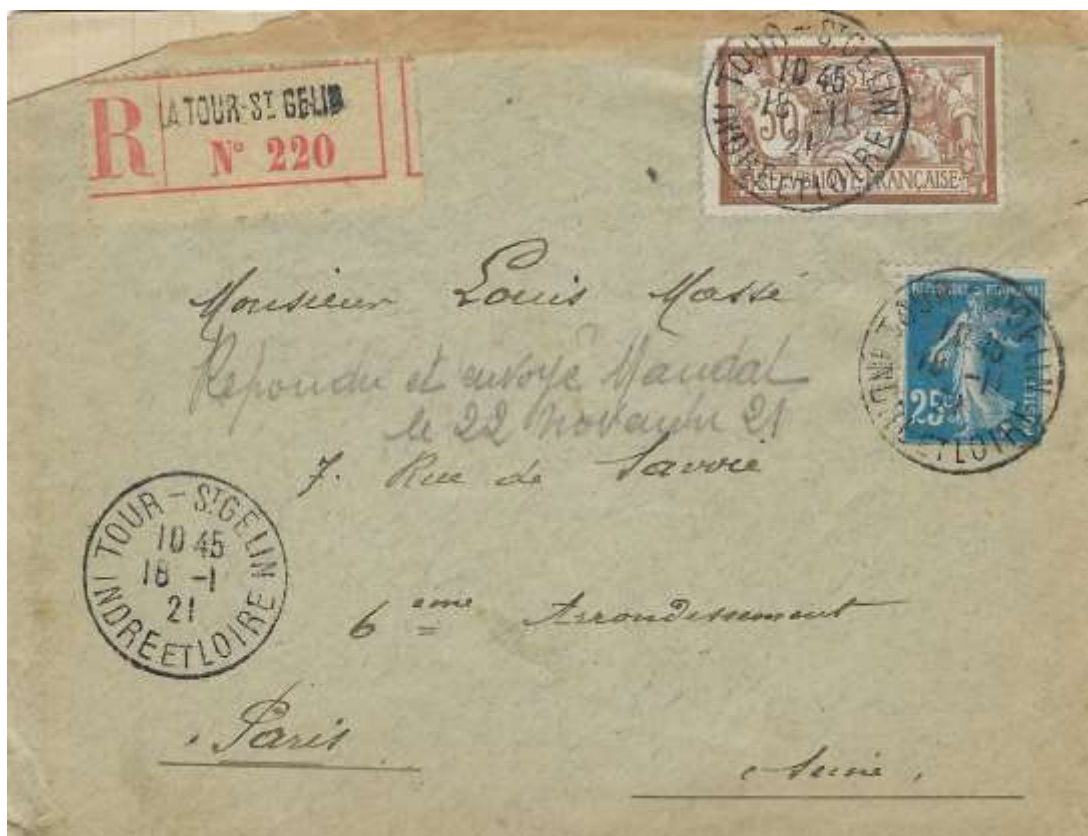 R
LA TOUR-ST GELIN
N° 220
TOUR - ST GELIN
10 45
18 -11
21
INDRE ET LOIRE
50
REPUBLIQUE FRANÇAISE
Monsieur Louis Massé
Repondu et envoyé Mandat
le 22 Novembre 21
7. Rue de Savoie
25c
POSTES
ET LOIRE
TOUR - ST GELIN
10 45
18 -1
21
INDRE ET LOIRE
6 eme Arrondissement
Paris
Seine.